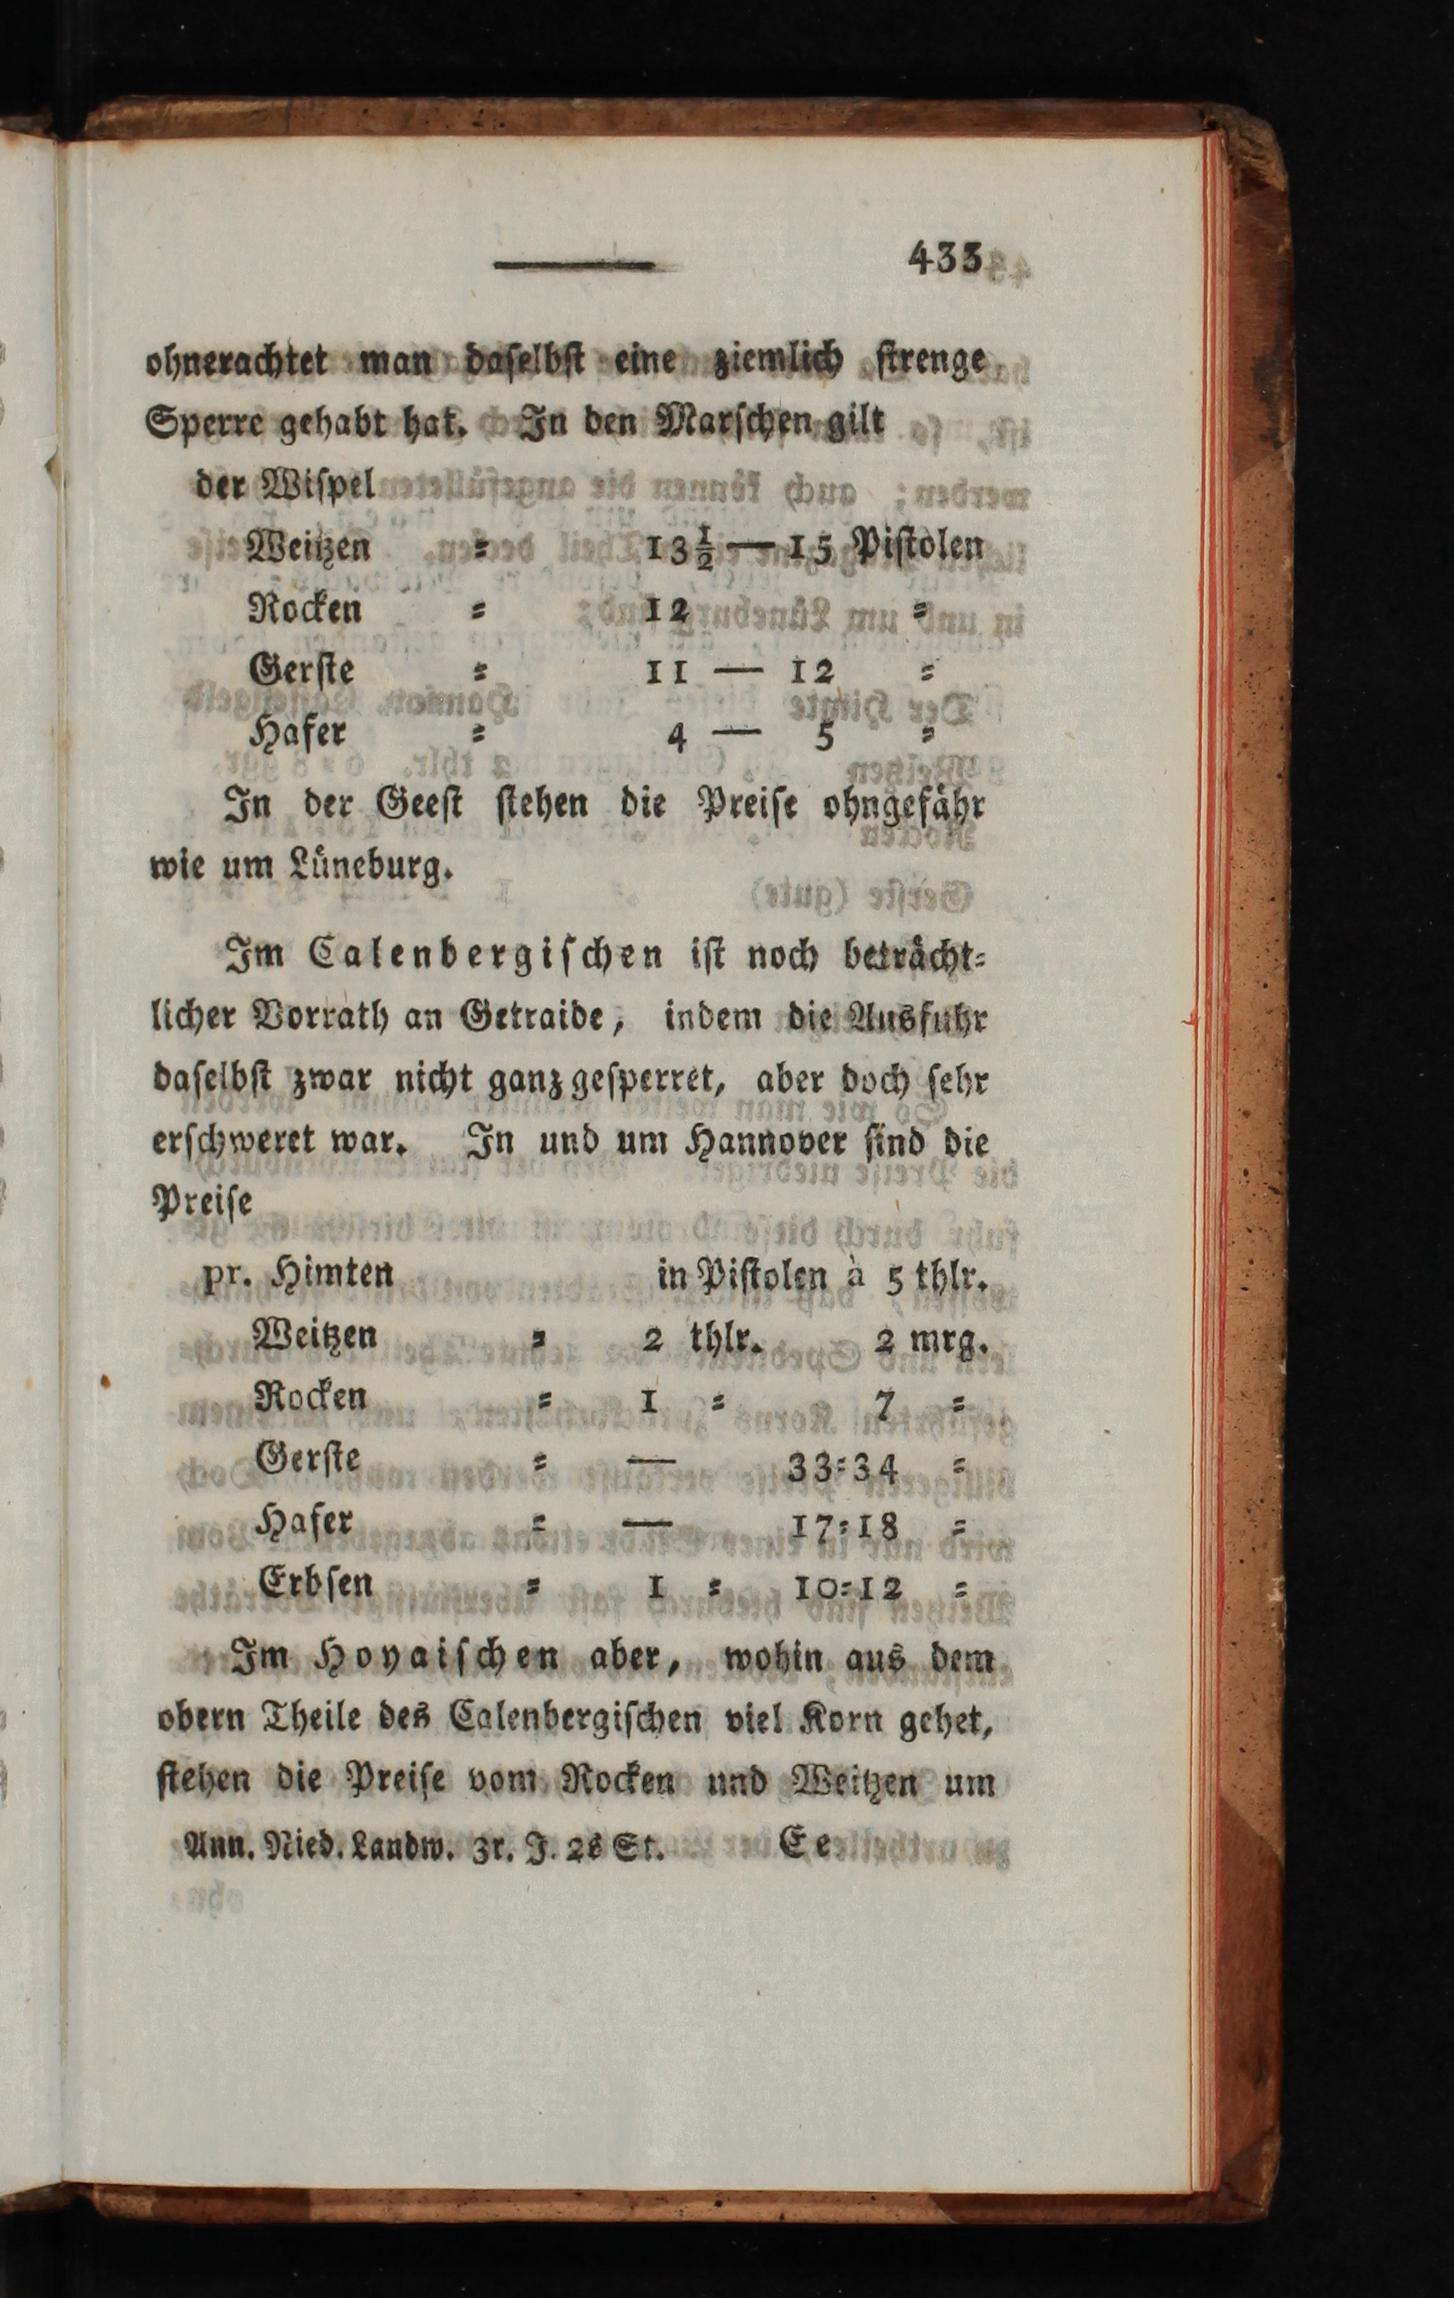 433
ohnerachtet man daselbst eine ziemlich strenge
Sperre gehabt hat. In den Marschen gilt
der Wispel
Weitzen = 13½ — 15 Pistolen
Rocken = 12 =
Gerste = 11 — 12 =
Hafer = 4 — 5 =
In der Geest stehen die Preise ohngefähr
wie um Lüneburg.
Im Calenbergischen ist noch beträcht=
licher Vorrath an Getraide, indem die Ausfuhr
daselbst zwar nicht ganz gesperret, aber doch sehr
erschweret war. In und um Hannover sind die
Preise
pr. Himten in Pistolen à 5 thlr.
Weitzen = 2 thlr. 2 mrg.
Rocken = 1 = 7 =
Gerste = — 33=34 =
Hafer = — 17=18 =
Erbsen = 1 = 10=12 =
Im Hoyaischen aber, wohin aus dem
obern Theile des Calenbergischen viel Korn gehet,
stehen die Preise vom Rocken und Weitzen um
Ann. Nied. Landw. 3r. J. 2s St. Ee